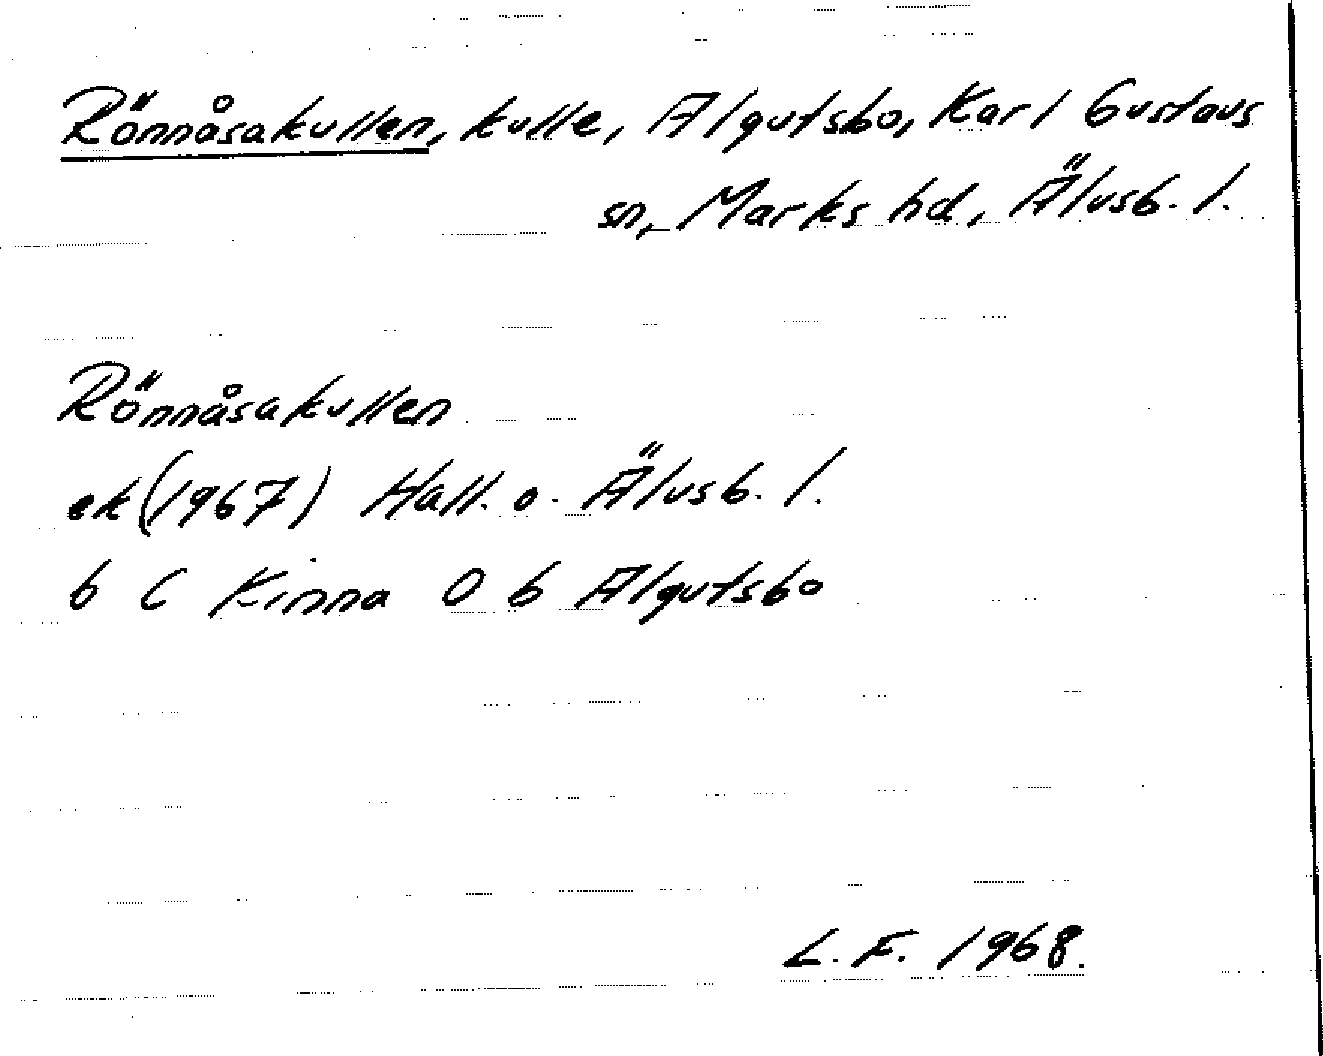 Rönnåsakullen, kulle, Algutsbo, Karl Gustavs
sn, Marks hd, Älvsb. l.
Rönnåsakullen
ek (1967) Hall. o. Älvsb. l.
6 C Kinna O b Algutsbo
L. F. 1968.